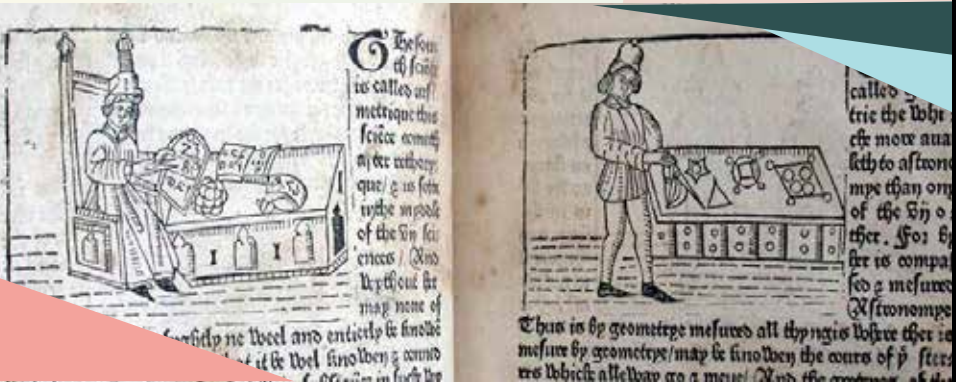 The four
th sciēce
is called ars
metrique this
sciēce cometh
after rethory
que / & is sette
in the myddle
of the vij sci
ences / And
wythout her
may none of
ne weel and entierly be knowen
it be wel knowen & conned
in suche
called
trie the whi
che more aua
leth to astrono
mye than ony
of the vij o
ther. For by
her is compas
sed & mesured
Astronomye
Thus is by geometrye mesured all thyngis where ther is
mesure by geometrye / may be knowen the cours of þe sterr
res whiche alleway go & meue / And the gretenes of the